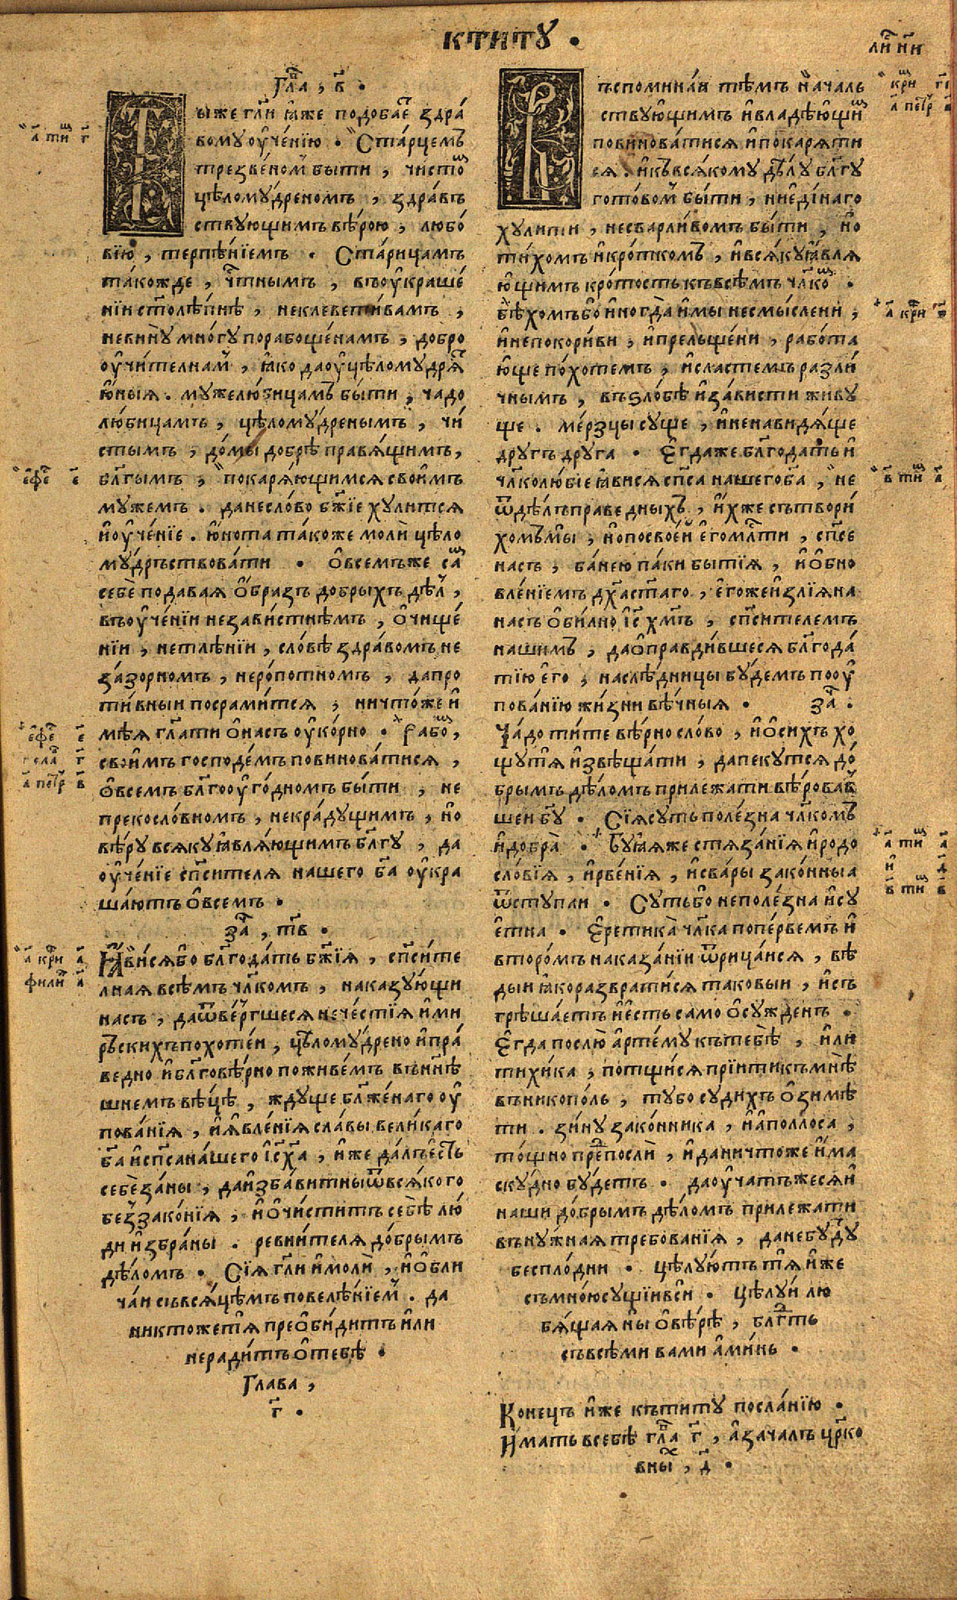 КТИТꙊ .
ли҃ ни҃
Гл҃а , в҃ .
а҃ ти щ г҃
Ты́же гл҃и ꙗ҆́же подоба́е здра́
вому оу҆че́нїю . Ста́рцемъ
трезве́номъ бы́ти , чи́сто
цѣломꙋ́дреномъ , здра́въ
ствующимъ вѣ́рою , любо́
вїю , терпѣ́нїемъ . Ста́рицамъ
та́кожде , чт҃нымъ , въоу҆краше́
нїи ст҃олѣ́пнѣ , неклеветли́вамъ ,
невинꙋ̀ мно́гꙋ порабоще́намъ , добро
оу҆чи́телнам , ꙗ҆́ко даоу҆цѣломꙋ́дря
ю҆́ныѧ . мꙋжелю́бицамъ бы́ти , чадо
лю́бицамъ , цѣломꙋ́дренымъ , чи́
стымъ , до́мы до́брѣ пра́вѧщимъ ,
е҆фе҃ є҃
бл҃гымъ , покаря́ющимсѧ свои҆́мъ
мꙋжемъ . данесло́во бж҃їе хꙋ́литсѧ
и҆оу҆че́нїе . ю҆́нота та́коже молѝ цѣ́ло
мꙋ́дръствовати . Ѻ҆всемъже са́
себѐ подава́ѧ ѻ҆́бразъ до́брыхъ дѣ́л ,
въоу҆че́нїи незави́стнѣмъ , ѻ҆чище́
нїи , нетлѣ́нїи , сло́вѣ здра́вомъ не
за́зорномъ , неро́потномъ , дапро
ти́вныи посрами́тсѧ , ничто́же и҆
е҆фе҃ є҃
мѣ́ѧ гл҃ати ѻ҆на́съ оу҆ко́рно . Рабо ,
кола҃ г҃
свои҆́мъ господе́мъ повинова́тисѧ ,
а҃ пет҃р в҃
ѻ҆всемъ бл҃гооу҆го́дномъ бы́ти , не
прекосло́вномъ , некра́дꙋщимъ , но
вѣ́рꙋ всѧ́кꙋ ꙗ҆вля́ющимъ бл҃гꙋ , да
оу҆че́нїе сп҃си́телѧ нашего бг҃а оу҆кра
ша́ютъ ѻ҆всемъ .
За҃ , тв҃ .
а҃ кри҃ а҃
ꙗ҆ви́сѧбо бл҃года́ть бж҃їѧ , сп҃си́те
фили҃ а҃
лнаѧ всѣ́мъ чл҃комъ , наказꙋ́ющи
на́съ , даѿве́ргшесѧ нече́стїѧ и҆ми
рьскихъпохоте́и , цѣломꙋ́дрено и҆пра́
ведно и҆бл҃говѣ́рно поживе́мъ въни҃нѣ
шнемъ вѣ́цѣ , жду́ще бл҃же́наго оу҆
пова́нїѧ , и҆ꙗ҆вле́нїѧ сла́вы вели́каго
бг҃а и҆сп҃са на́шего і҆с҃ х҃а , и҆́же да́лъѐсть
себѐзаны , даи҆зба́витныѿвсѧ́кого
беззако́нїѧ , и҆ѻ҆чи́ститъ себѣ̀ лю́
ди и҆збра́ны . ревни́телѧ до́брымъ
дѣ́ломъ . Сїѧ̀ гл҃и и҆молѝ , и҆ѻ҆бли
ча́и съвсѧ́цѣмъ повелѣ́нїем . да
никто́жетѧ прео҆би́дитъ и҆ли
неради́тъ ѻ҆тебѣ̀ .
Глава ,
г҃ .
къспомина́и тѣ́мъ нача́лъ
кри г҃і
ствꙋ́ющимъ и҆владѣ́ющи
а҃ пет҃р
повинова́тисѧ и҆покаря́ти
сѧ . и҆кувсѧ́кому дѣ́лꙋ бл҃гꙋ
гото́вом бы́ти , ниеди́наго
хꙋ́лити , несварли́вомъ бы́ти , но
ти́хомъ и҆кро́ткомъ , и҆всѧ́кꙋꙗ҆вля
ю҆щимъ кро́тость къвсѣ́мъ чл҃ко .
а҃ кри҃
бѣ́хомъбо и҆ногда̀ и҆мы̀ несмы́слени ,
и҆непокори́ви , и҆прельще́ни , рабо́та
ю҆ще по́хотемъ , и҆сластемъ разли́
чнымъ , въѕло́бѣ и҆за́висти живꙋ́
ще . ме́рзцы сꙋще , и҆ненави́дѧще
дрꙋгъ дрꙋга . Е҆гда́же бл҃года́ть и҆
в҃ ти щ а҃
чл҃колю́бїе ꙗ҆ви́сѧ сп҃са нашегоба҃ , не
ѿдѣ́лъпра́ведныхъ , и҆́хже сътвори́
хомъмы̀ , и҆опосвое́и е҆гомл҃ти , сп҃се
насъ , ба́нею паки бытїѧ̀ , и҆ѻ҆бно
вле́нїемъ дх҃аст҃аго , е҆го́жеи҆злїѧ̀на
насъ ѻ҆би́лно і҆с҃ хм҃ъ , сп҃си́телемъ
нашимъ , даѻ҆правди́вшесѧ бл҃года́
тїю е҆го̀ , наслѣ́дницы бꙋ́демъ поо҆у
пова́нїю жи́зни вѣ́чныѧ . за҃ .
Ча́до ти́те вѣ́рно сло́во , и҆ѻ҆си́хъ хо
щꙋ́тѧ и҆звѣща́ти , дапекꙋ́тсѧ до́
брымъ дѣ́ломъ прилежа́ти вѣ́ровав
шеи бг҃ꙋ . Сїѧ̀сꙋть поле́зна чл҃комъ
а҃ ти щ а҃
и҆добра̀ . Бꙋ́ꙗ҆ѧже стѧза́нїѧ и҆родо
и҆ д҃
сло́вїѧ , и҆рве́нїѧ , и҆сва́ры зако́нныа
в҃ ти щ в҃
ѿстꙋпаи . Сꙋть́бо неполе́зна и҆сꙋ
е҆тна . Е҆ретика̀ чл҃ка попе́рвемъ и҆
второ́мъ наказа́нїи ѿрица́исѧ , вѣ́
дыи ꙗ҆́коразврати́сѧ таковы́и , и҆съ
грѣша́етъ и҆е҆́сть само̀ ѻ҆сꙋжде́нъ .
Е҆гда послю̀ а҆рте́мꙋ къ тебѣ̀ , и҆ли
тихи́ка , потщи́сѧ прїити́къмнѣ̀
въникопо́ль , тꙋ́бо сꙋди́хъ ѻ҆зимѣ̀
ти . зи́нꙋ зако́нника , и҆а҆поллоса ,
то́щно препослѝ , и҆даничто́же и҆ма
скꙋ́дно бꙋ́детъ . даоу҆ча́тъжесѧи҆
на́ши до́брымъ дѣ́ломъ прилежа́ти
вънꙋ́жнаѧ тре́бованїѧ , данебꙋдꙋ
беспло́дни . цѣлꙋ́ютъ тѧ и҆́же
съмно́ю сꙋщїивси . цѣлꙋ́и лю́
бѧщаѧ ны ѻ҆вѣ́рѣ , бл҃гть
съвсѣ́ми вами а҆ми́нь .
Коне́цъ и҆́же къти́тꙋ посла́нїю .
И҆мать всебѣ̀ гл҃а г҃ , а҆зача́лъ цр҃ко
вны҃ , д҃ .